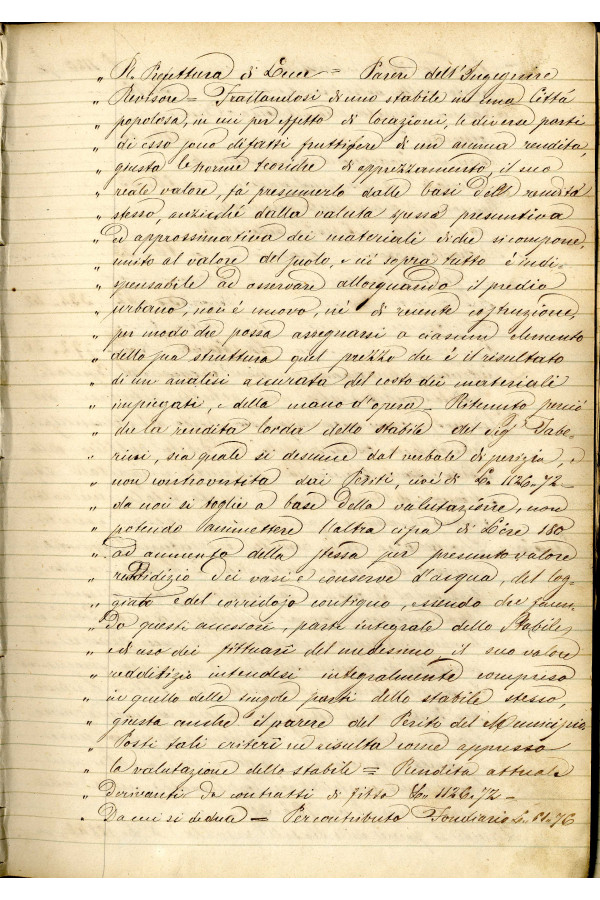 „ R. Prefettura di Lecce = Parere dell'Ingegnere
„ Revisore = Trattandosi di uno stabile in una Città
„ popolosa, in cui per effetto di locazioni, le diverse parti
„ di esso sono difatti fruttifere di un annua rendita,
„ giusta le norme teoriche di apprezzamento, il suo
„ reale valore, fà presumerlo dalle basi della rendita
„ stessa, anziché dalla valuta spesso presuntiva
„ ed approssimativa dei materiali di che si compone,
„ unito al valore del suolo, e ciò sopra tutto è indi-
„ spensabile ad osservare allorquando il predio
„ urbano, non è nuovo, né di recente costruzione,
„ per modo che possa assegnarsi a ciascun elemento
„ della sua struttura quel prezzo che è il risultato
„ di un analisi accurata del costo dei materiali
„ impiegati, e della mano d'opera - Ritenuto perciò
„ che la rendita lorda dello stabile del Sig.r
„ sia quale si desume dal verbale di perizia, e
„ non controvertita dai Periti, cioè di L. 1126-72-
„ da noi si toglie a base della valutazione, non
„ potendo ammettere l'altra cifra di Lire 180
„ ad aumento della stessa per presunto valore
„ redditizio dei vasi e conserve d'acqua, del log-
„ giato e del corridojo contiguo, essendo che facen-
„ do questi accessori, parte integrale dello Stabile,
„ e di uso dei fittuarî del medesimo, il suo valore
„ redditizio intendesi integralmente compreso
„ in quello delle singole parti dello stabile stesso,
„ giusta anche il parere del Perito del Municipio,
„ Posti tali criterî ne risulta come appresso
„ la valutazione dello stabile = Rendita attuale
„ derivanti da contratti di fitto L. 1126-72-
„ Da cui si deduce = Per contributo Fondiario L.